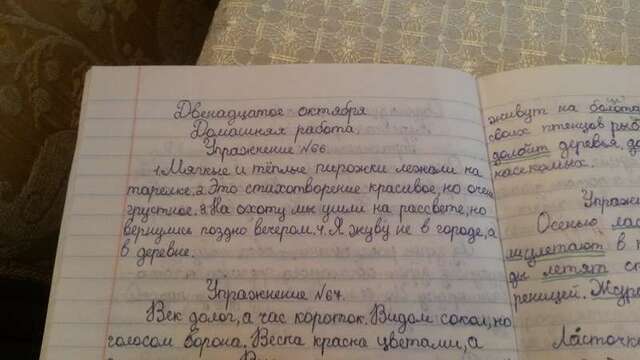 Двенадцатое октября
Домашняя работа
Упражнение №66.
1.Мягкие и тёплые пирожки лежали на
тарелке.2.Это стихотворение красивое, но очень
грустное.3.На охоту мы ушли на рассвете, но
вернулись поздно вечером.4.Я живу не в городе, а
в деревне.
Упражнение №67.
Век долог, а час короток. Видом сокол, но
голосом ворона. Весна красна цветами, а
живут на болота
своих птенцов рыб
долбит деревья, до
насекомых.
Упражн
Осенью лас
улетают в
ды летят
реницей. Жур
Ласточк